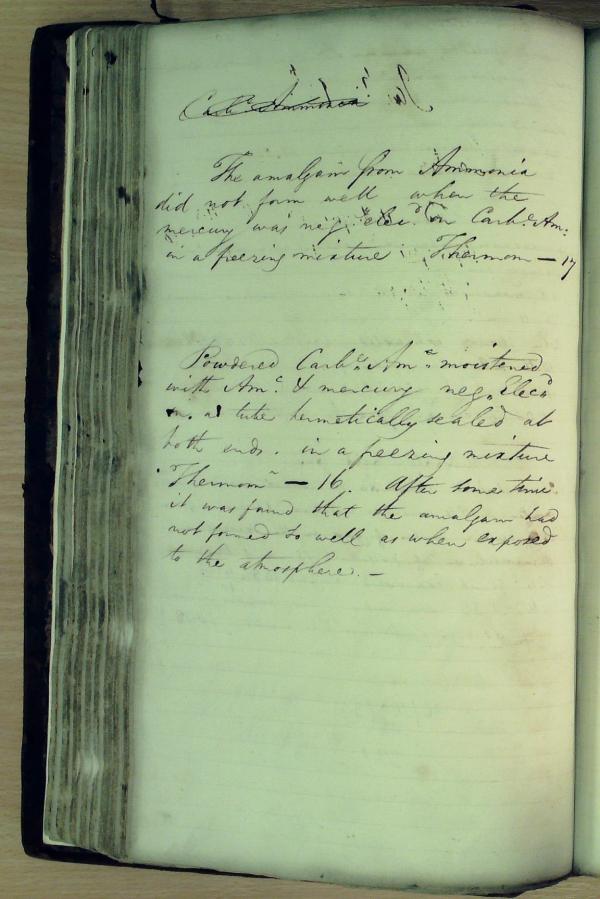 Carbe Ammonia
The amalgam from Ammonia
did not form well when the
mercury was neg. elec.d on Carb.e Am:
in a freezing mixture Thermom — 17
Powdered Carb.e Am.a moistened
with Am.a & mercury neg. Elec.d
in a tube hermetically sealed at
both ends. in a freezing mixture
Thermom.r — 16. After some time
it was found that the amalgam had
not formed so well as when exposed
to the atmosphere. —